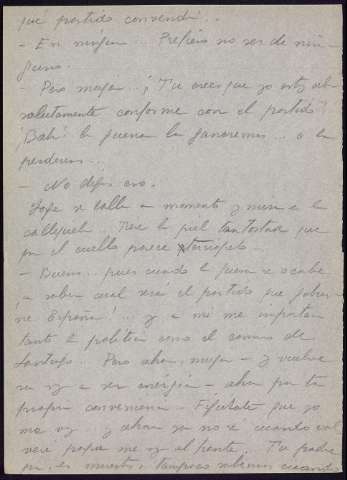 qué partido convendrá...
- En ningun... Prefiero no ser de nin-
guno.
- Pero mujer... ¡Tu crees que yo estoy ab-
solutamente conforme con el partido?
¡Bah! la guerra la ganaremos... o la
perderemos...
- No digas eso.
Jose se calla un momento y mira a la
Tiene la piel tan tostada que
en el cuello parece terciopelo -
- Bueno... pues cuando la guerra se acabe
a saber cual será el partido que gober-
ne España!... y a mi me importa
tanto la politica como el camino de
Santiago... Pero ahora, mujer - y vuelve
su voz a ser energica - ahora por tu
propia conveniencia - Figurate que yo
me voy... y ahora ya no sé cuando vol
veré porque me voy al frente. Tu padre
muerto, tampoco sabemos cuando